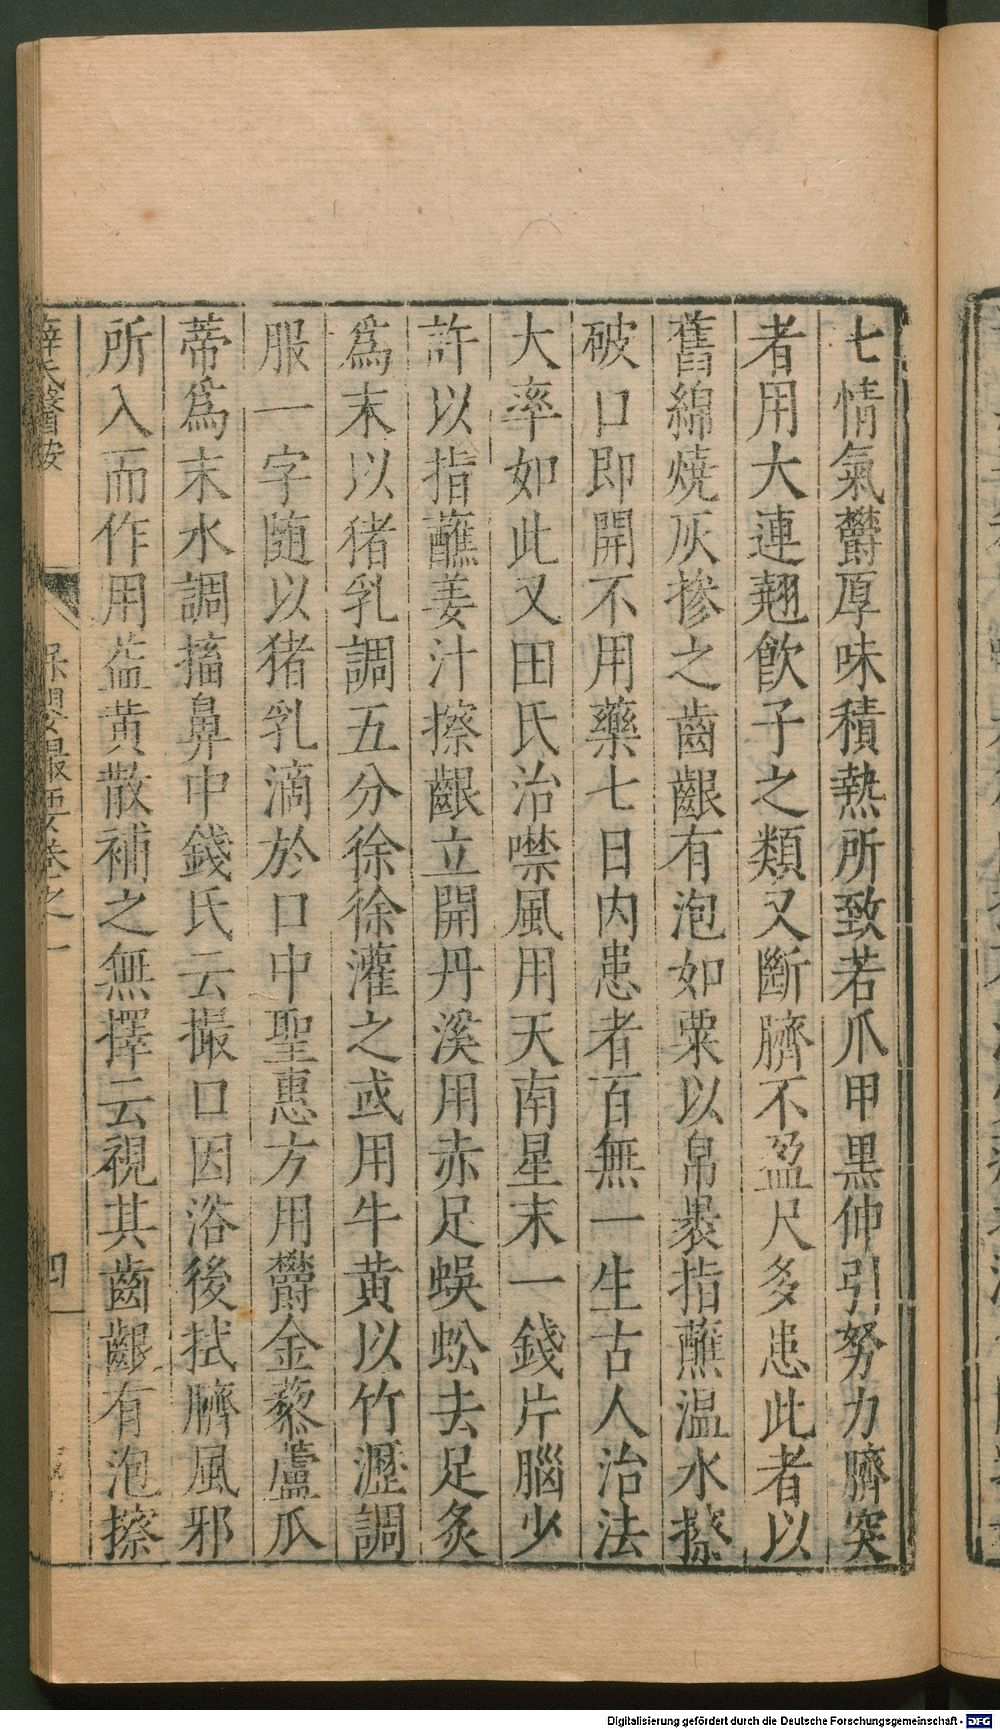 七情氣欝厚味積熱所致若爪甲黒伸引努力臍突
者用大連翹飲子之類又斷臍不盈尺多患此者以
舊綿燒灰摻之齒齦有泡如粟以帛裹指蘸温水擦
破口即開不用藥七日内患者百無一生古人治法
大率如此又田氏治噤風用天南星末一錢片腦少
許以指蘸姜汁擦齦立開丹溪用赤足蜈蚣去足炙
爲末以猪乳調五分徐徐灌之或用牛黄以竹瀝調
服一字随以猪乳滴於口中聖惠方用欝金藜蘆瓜
蒂爲末水調搐鼻中錢氏云撮口因浴後拭臍風邪
所入而作用益黄散補之無擇云視其齒齦有泡擦
薛氏醫按
保嬰撮要卷之一
四
Digitalisierung gefördert durch die Deutsche Forschungsgemeinschaft - DFG